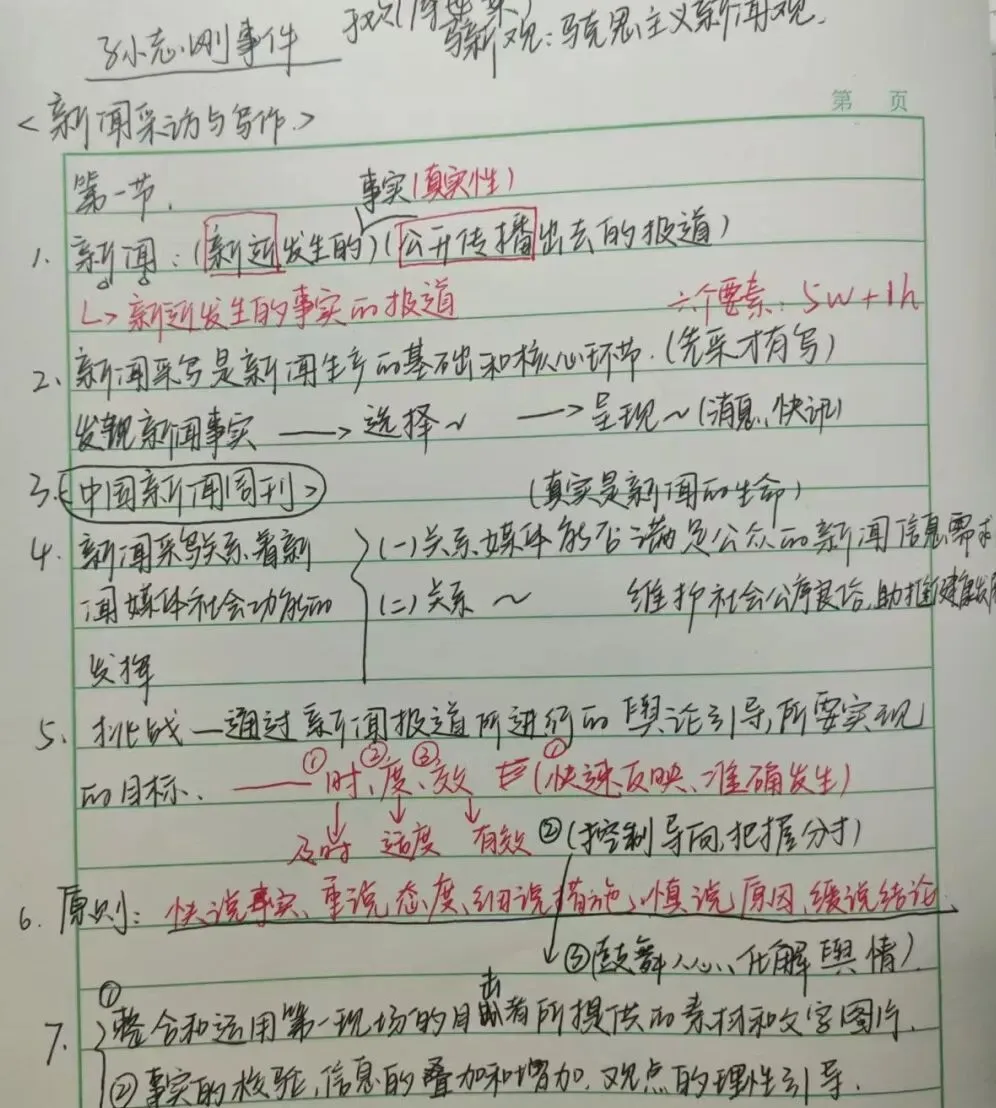 孙志刚事件
马新观：马克思主义新闻观.
<新闻采访与写作.>
第 页
第一节.
事实(真实性)
1. 新闻：(新近发生的)(公开传播出去的报道)
↳ 新近发生的事实的报道 六个要素：5w+1h
2. 新闻采写是新闻生产的基础和核心环节.(先采才有写)
发现新闻事实 ——> 选择~ ——> 呈现~(消息、快讯)
3.<中国新闻周刊> (真实是新闻的生命)
4. 新闻采写关系着新 (一)关系媒体能否满足公众的新闻信息需求
闻媒体社会功能的 (二)关系 ~ 维护社会公序良俗,助推健康发展
发挥
5. 挑战—通过新闻报道所进行的舆论引导,所要实现
的目标. ——①时、②度、③效 ①(快速反映、准确发生)
及时 适度 有效 ②(控制导向,把握分寸)
6. 原则：快说事实、重说态度、细说措施、慎说原因,缓说结论.
③(鼓舞人心、化解舆情)
7. ①整合和运用第一现场的目击者所提供的素材和文字图片.
②事实的核验,信息的叠加和增加,观点的理性引导.